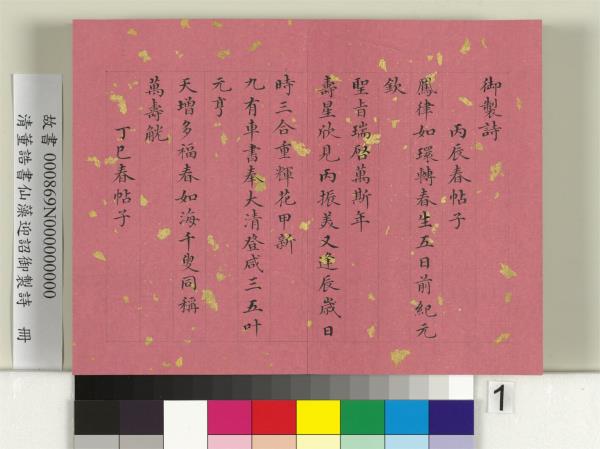 御製詩
丙辰春帖子
鳳律如環轉春生五日前紀元
欽
聖㫖瑞啓萬斯年
壽星欣見丙振美又逢辰歲日
時三合重輝花甲新
九有車書奉大清登咸三五叶
元亨
天增多福春如海千叟同稱
萬壽觥
丁巳春帖子
故書 000869N000000000
清董誥書仙藻迎詔御製詩 冊
1